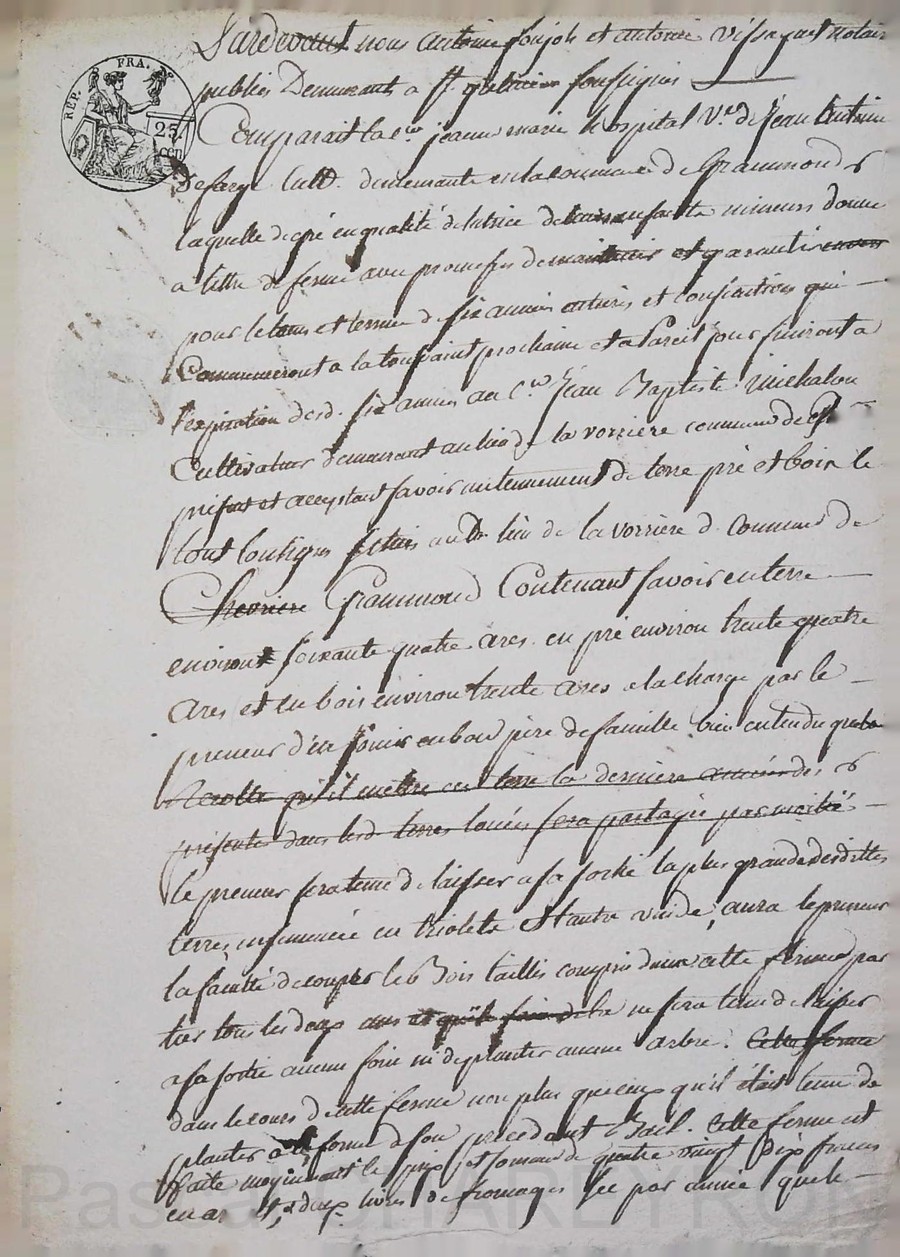 REP. FRA.
25
cen
Pardevant nous antoine et antoine notaires
publics Demeurants a St. soussignés
Comparait la c.ne jeanne marie hospital V.e de jean Antoine
Defarge Cult. demeurante en la commune de Grammond &
laquelle de gré en qualité de tutrice de leurs enfants mineurs donne
a titre de ferme avec promesse de maintenir et garantir envers
pour le tems et terme de six années entieres et consécutives qui
Commenceront a la toussaint prochaine et a Pareil jour finiront a
l'expiration desd. six années au C.en Jean Baptiste Michalon
Cultivateur demeurant au lieu de la vorriere commune de
présent et acceptant savoir un tennement de terre pré et bois le
tout Contigus situés audt. lieu de la vorriere d. Commune de
Chevriere Grammond Contenant savoir en terre
environ soixante quatre ares en pré environ trente quatre
Ares et en bois environ trente ares a la charge par le
preneur d'en jouir en bon pere de famille bien entendu que la
Recolte qu'il mettra en terre la derniere année des &
présentes dans lesd. terres louées sera partagée par moitié
le preneur sera tenu de laisser a sa sortie la plus grande desdittes
terres, ensemencée en triolet et l'autre vuide, aura le preneur
la faculté de couper le Bois taillis compris dans cette ferme par
tier tous les deux ans ne sera tenu de laisser
a sa sortie aucun foin ni de planter aucun arbre. Cette ferme
dans le cours de cette ferme non plus que ceux qu'il était tenu de
planter a la forme de son précédant Bail. Cette ferme est
faite moyennant le prix et somme de quatre vingt Dix francs
en a deux livres de fromages sec par année que le